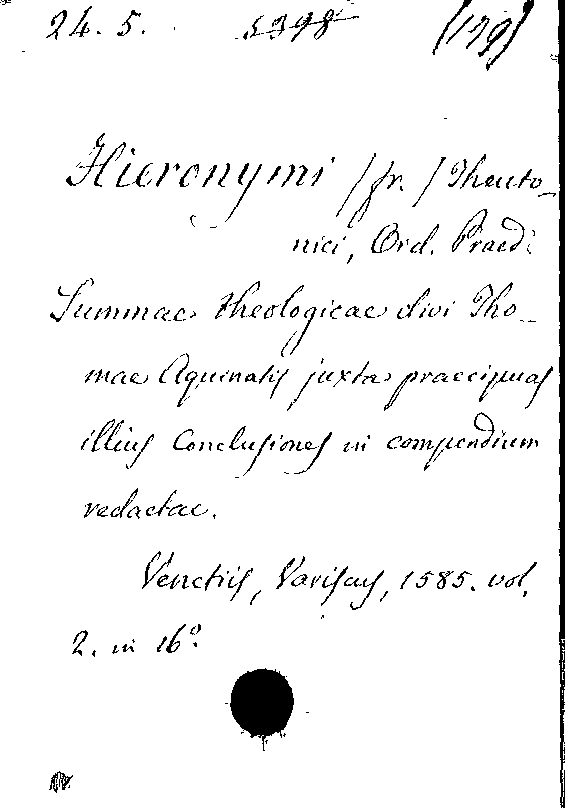 24. 5. 5398 (179)
Hieronymi /fr./ Theuto-
nici, Ord. Praed:
Summae theologicae divi Tho-
mae Aquinatis juxta praecipuas
illius Conclusiones in compendium
redactae.
Venetiis, Varisas, 1585. vol.
2. in 16º